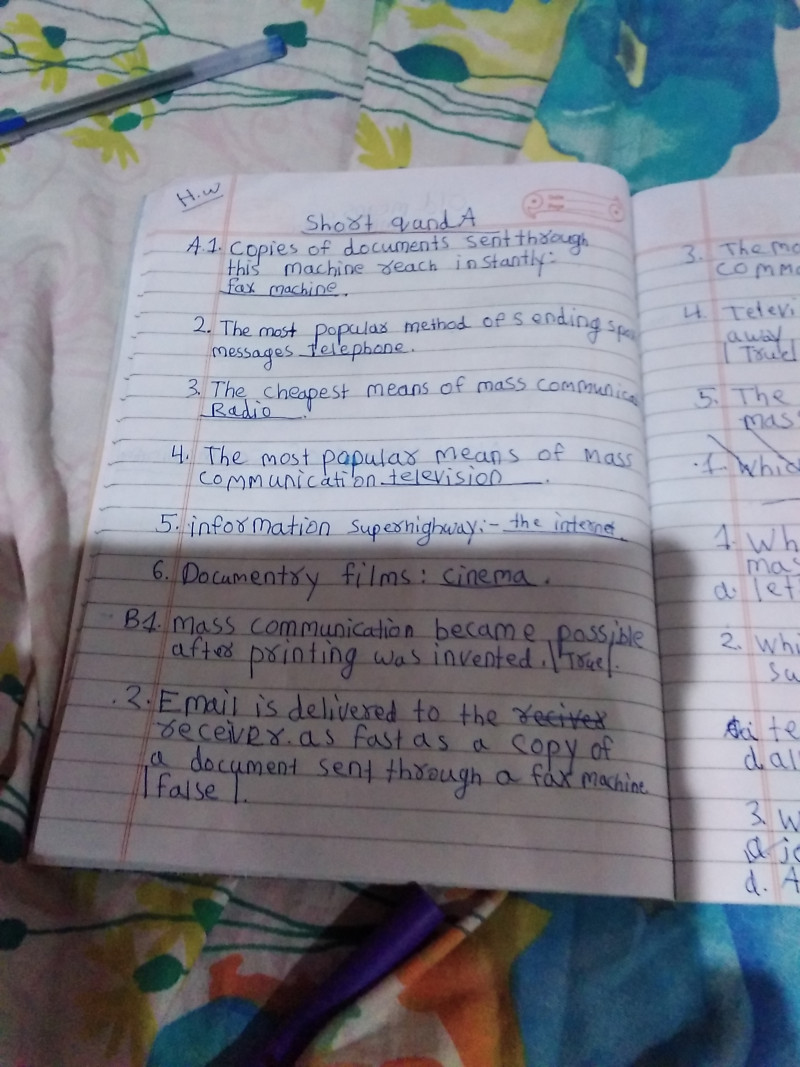 H.W
Short q and A
A.1. Copies of documents sent through
this machine reach instantly:
fax machine.
2. The most popular method of sending
messages telephone.
3. The cheapest means of mass
Radio.
4. The most popular means of mass
communication television.
5. information superhighway:- the internet.
6. Documentry films: cinema.
B1. Mass communication became possible
after printing was invented. |True|.
2. Email is delivered to the reciver
receiver. as fast as a copy of
a document sent through a fax machine
|false|.
3. The
4.
away
|True|
5. The
1.
1. Wh
a.
2. Whi
3. W
a.
d. A